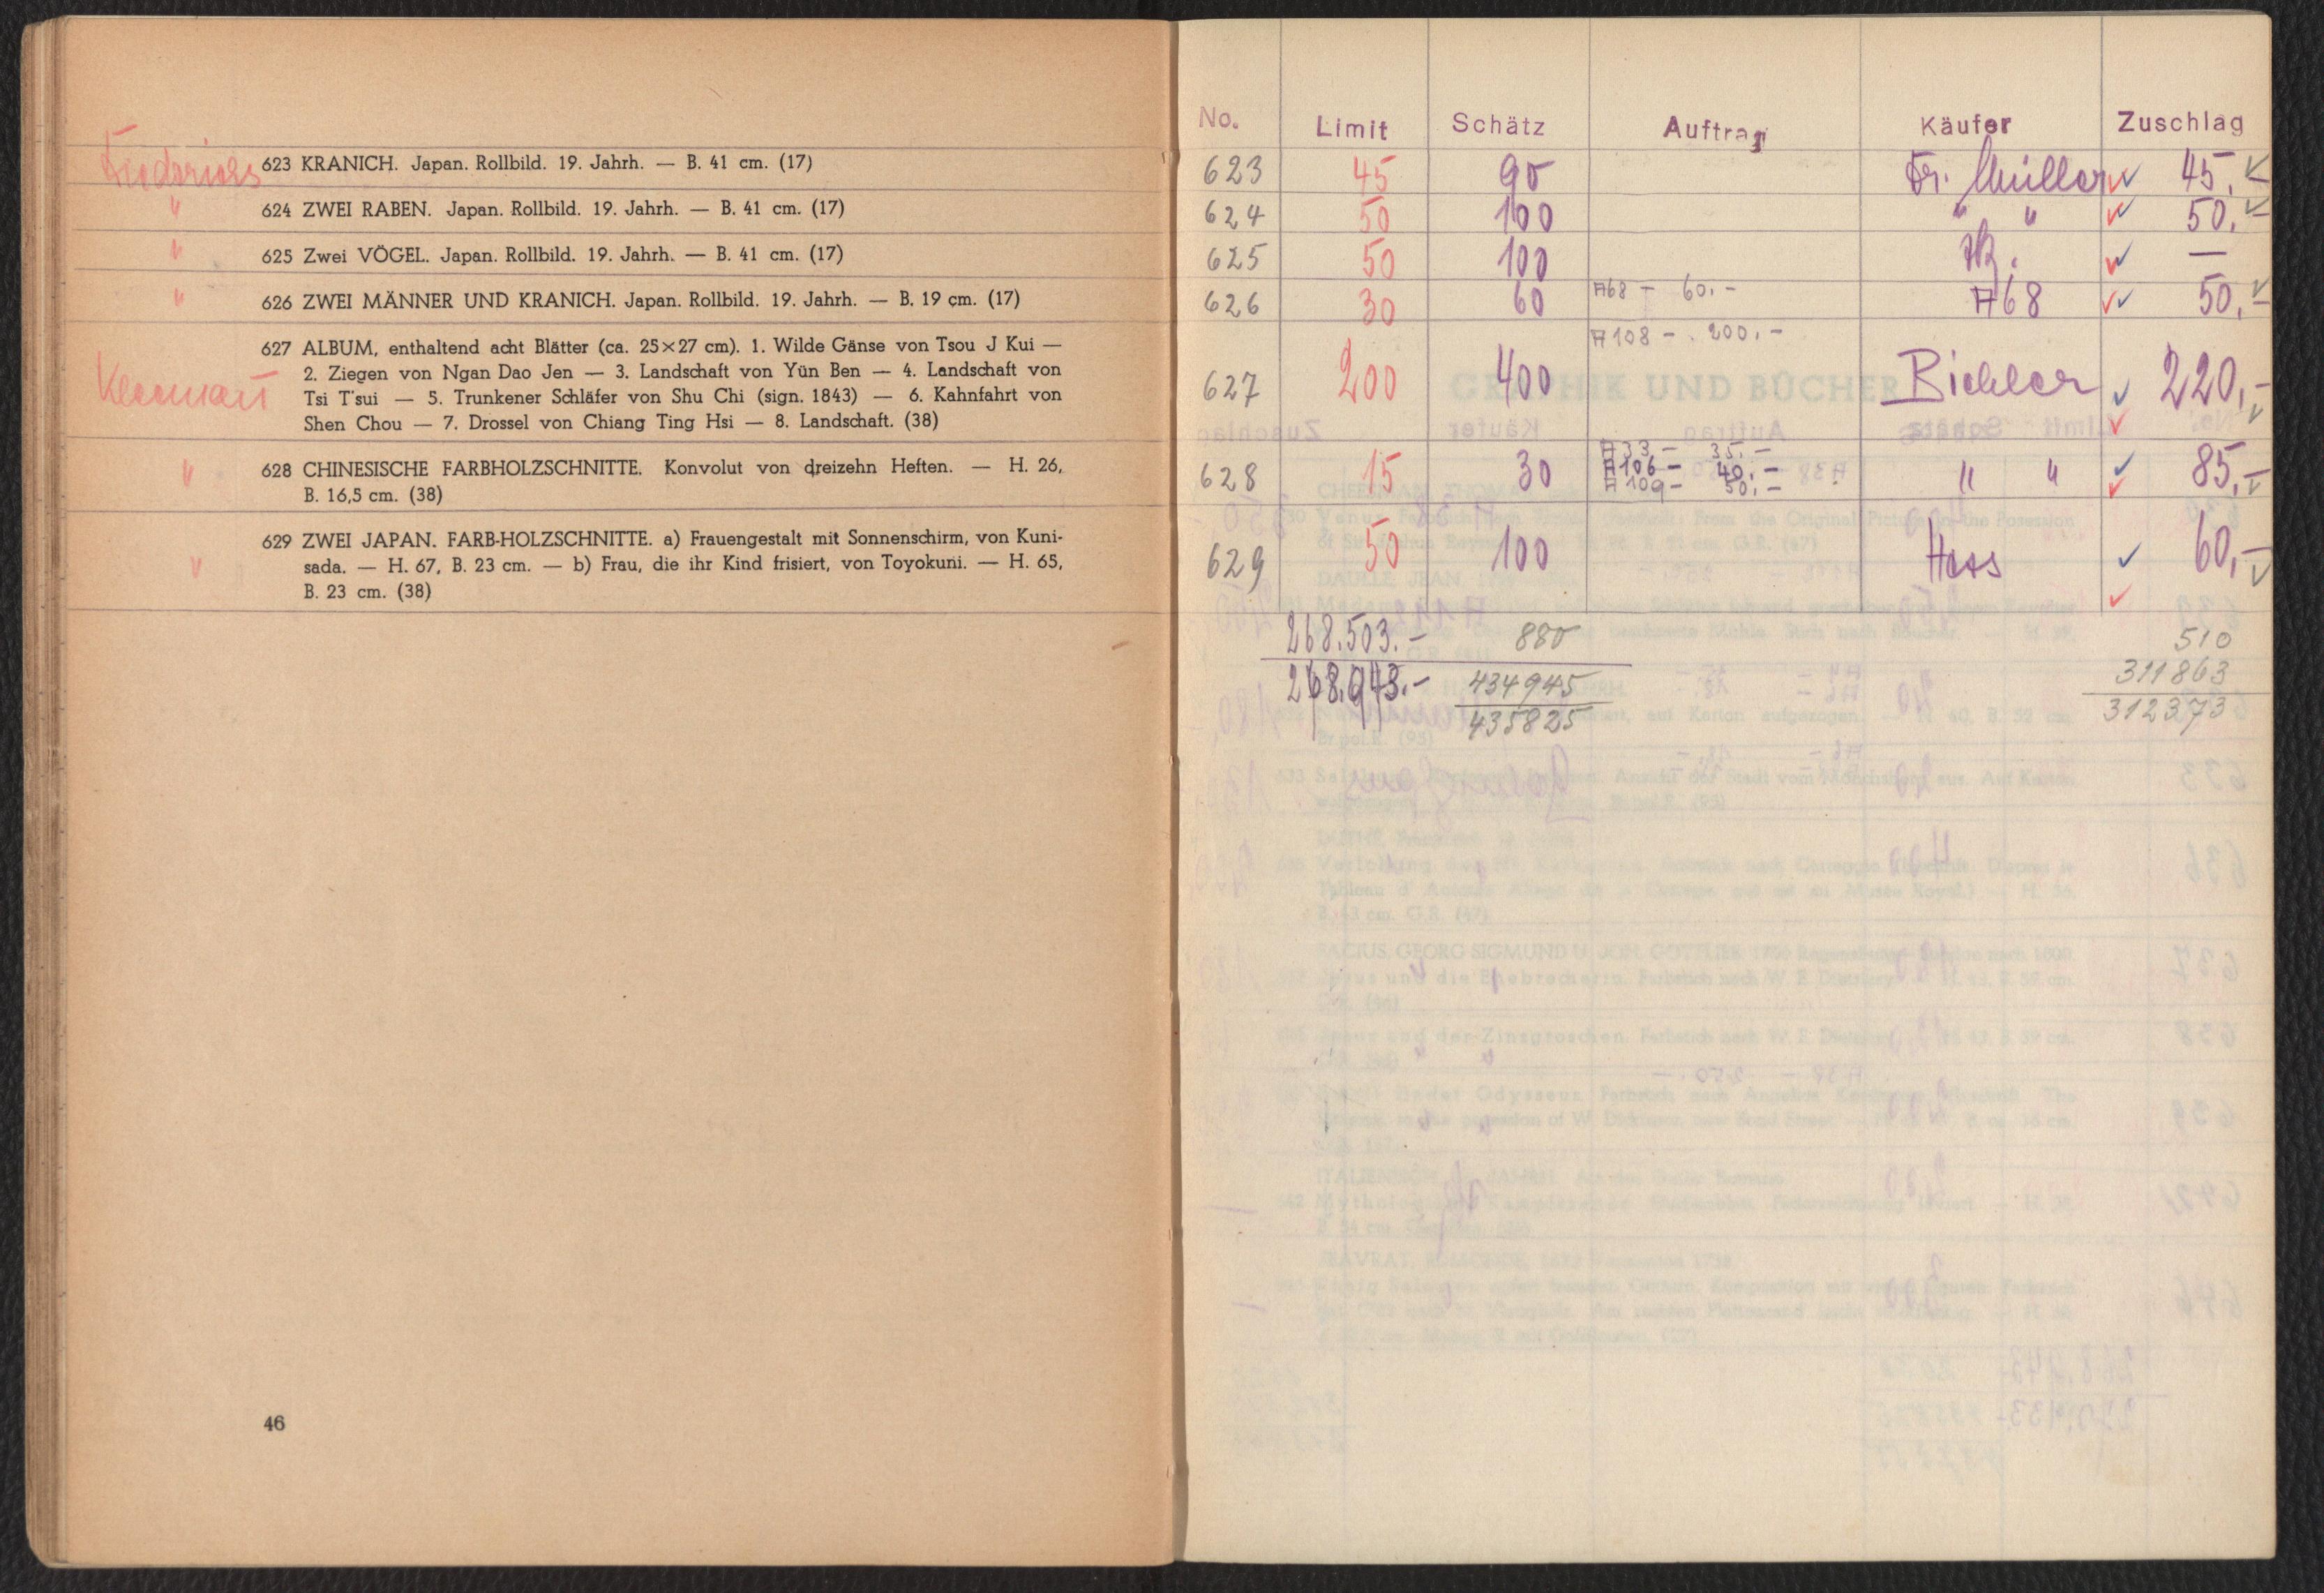 623 KRANICH. Japan. Rollbild. 19. Jahrh. — B. 41 cm. (17)
" 624 ZWEI RABEN. Japan. Rollbild. 19. Jahrh. — B. 41 cm. (17)
" 625 Zwei VÖGEL. Japan. Rollbild. 19. Jahrh. — B. 41 cm. (17)
" 626 ZWEI MÄNNER UND KRANICH. Japan. Rollbild. 19. Jahrh. — B. 19 cm. (17)
627 ALBUM, enthaltend acht Blätter (ca. 25×27 cm). 1. Wilde Gänse von Tsou J Kui —
2. Ziegen von Ngan Dao Jen — 3. Landschaft von Yün Ben — 4. Landschaft von
Tsi T'sui — 5. Trunkener Schläfer von Shu Chi (sign. 1843) — 6. Kahnfahrt von
Shen Chou — 7. Drossel von Chiang Ting Hsi — 8. Landschaft. (38)
" 628 CHINESISCHE FARBHOLZSCHNITTE. Konvolut von dreizehn Heften. — H. 26,
B. 16,5 cm. (38)
" 629 ZWEI JAPAN. FARB-HOLZSCHNITTE. a) Frauengestalt mit Sonnenschirm, von Kuni-
sada. — H. 67, B. 23 cm. — b) Frau, die ihr Kind frisiert, von Toyokuni. — H. 65,
B. 23 cm. (38)
46
No. Limit Schätz Auftrag Käufer Zuschlag
623 45 90 Dr. Müller 45,-
624 50 100 " " 50,-
625 50 100 —
626 30 60 A68 - 60.- A68 50,-
A108 - 200.-
627 200 400 Bichler 220,-
A33 - 35.-
A106 - 40.-
628 15 30 A109 - 50.- " " 85,-
629 50 100 Hess 60,-
268.503.- 880 510
268.943.- 434945 311863
435825 312373
GRAPHIK UND BÜCHER